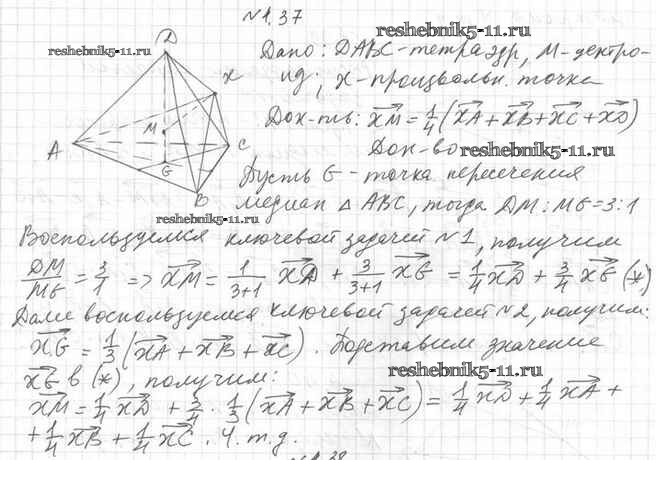 N1.37
reshebnik5-11.ru
reshebnik5-11.ru
D
X
M
A
C
G
B
reshebnik5-11.ru
Дано: DABC-тетраэдр, M-центро-
ид; X-произвольн. точка
Док-ть: XM = 1/4 (XA + XB + XC + XD)
Док-во
reshebnik5-11.ru
Пусть G - точка пересечения
медиан △ ABC, тогда DM : MG = 3 : 1
Воспользуемся ключевой задачей N1, получим
DM/MG = 3/1 => XM = 1/(3+1) XD + 3/(3+1) XG = 1/4 XD + 3/4 XG (*)
Далее воспользуемся ключевой задачей N2, получим:
XG = 1/3 (XA + XB + XC). Подставим значение
XG в (*), получим:
reshebnik5-11.ru
XM = 1/4 XD + 3/4 · 1/3 (XA + XB + XC) = 1/4 XD + 1/4 XA +
+ 1/4 XB + 1/4 XC. Ч.т.д.